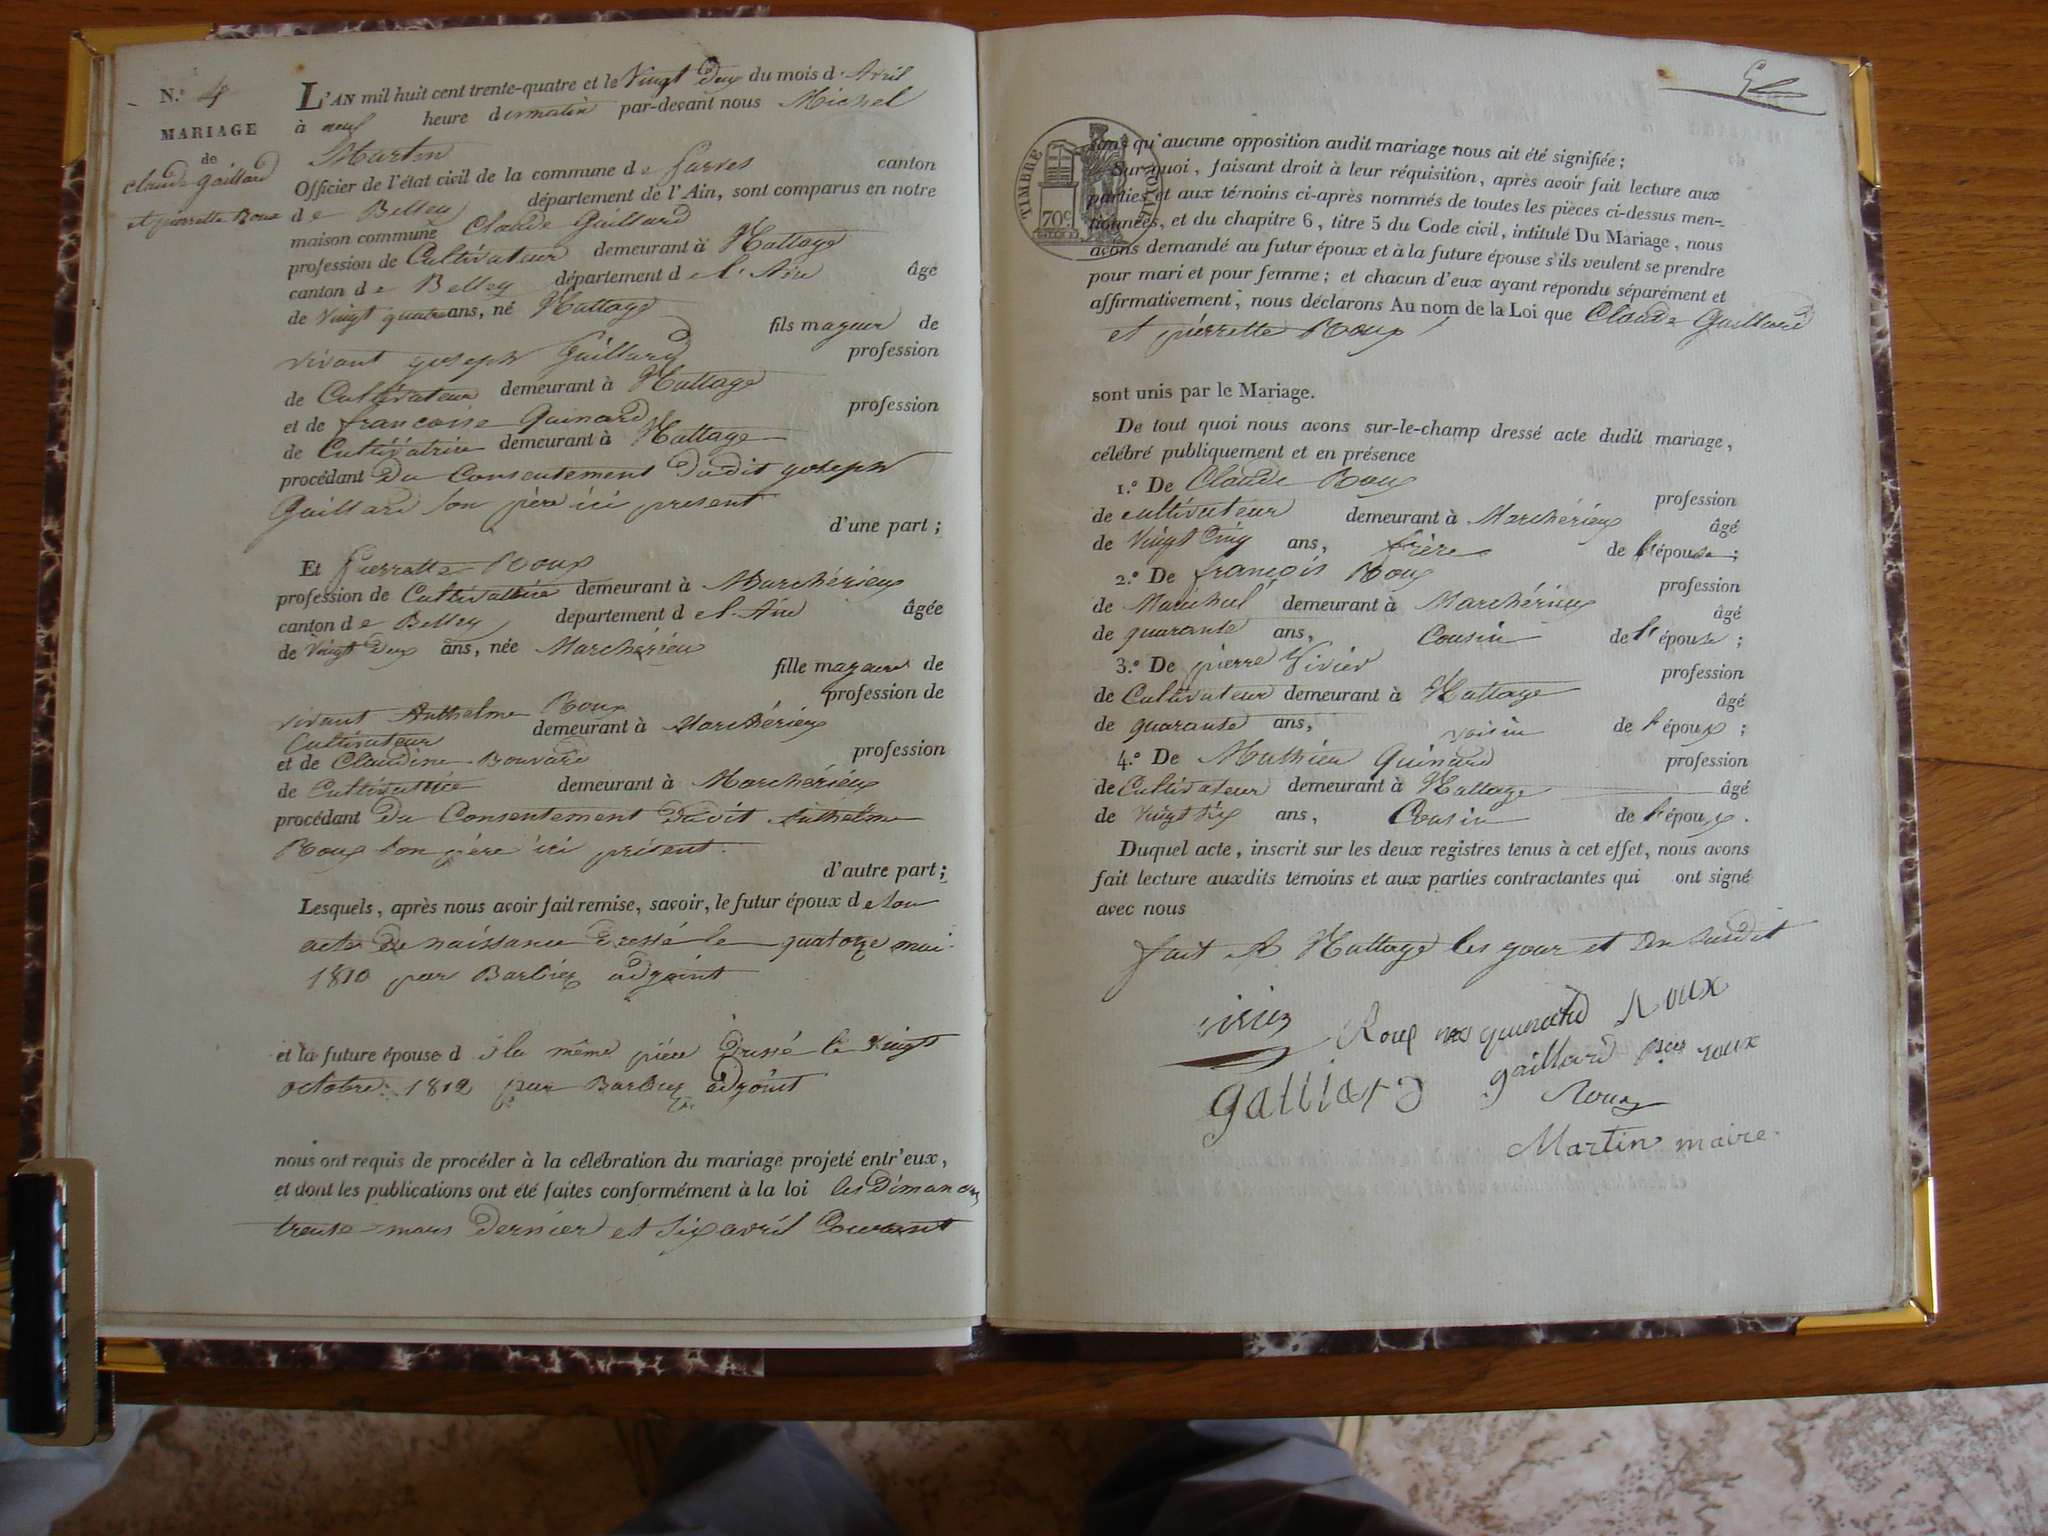 N.º 4
MARIAGE
de
Claude Gaillard
et pierrette Roux
L'AN mil huit cent trente-quatre et le Vingt deux du mois d'Avril
à neuf heure du matin par-devant nous Michel
Martin
Officier de l'état civil de la commune de canton
de Belley département de l'Ain, sont comparus en notre
maison commune Claude Gaillard
profession de Cultivateur demeurant à Nattage
canton de Belley département de l'Ain âgé
de Vingt quatre ans, né Nattage
fils majeur de
vivant joseph Gaillard profession
de Cultivateur demeurant à Nattage
et de francoise Guinard profession
de Cultivatrice demeurant à Nattage
procédant du Consentement dudit joseph
Gaillard son père ici present
d'une part ;
Et Pierrette Roux
profession de Cultivatrice demeurant à Marchérieu
canton de Belley département de l'Ain âgée
de Vingt deux ans, née Marchérieu
fille majeure de
vivant Anthelme Roux profession de
Cultivateur demeurant à Marchérieu
et de Claudine Bouvard profession
de Cultivatrice demeurant à Marchérieu
procédant du Consentement dudit Anthelme
Roux son père ici présent.
d'autre part ;
Lesquels, après nous avoir fait remise, savoir, le futur époux de son
acte de naissance dressé le quatorze mai
1810 par Barbier adjoint
et la future épouse d la même pièce dressé le Vingt
octobre 1812 par Barbier adjoint
nous ont requis de procéder à la célébration du mariage projeté entr'eux,
et dont les publications ont été faites conformément à la loi les Dimanches
trente mars dernier et six avril Courant
TIMBRE ROYAL
70c
sans qu'aucune opposition audit mariage nous ait été signifiée ;
Sur quoi, faisant droit à leur réquisition, après avoir fait lecture aux
parties et aux témoins ci-après nommés de toutes les pièces ci-dessus men-
tionnées, et du chapitre 6, titre 5 du Code civil, intitulé Du Mariage, nous
avons demandé au futur époux et à la future épouse s'ils veulent se prendre
pour mari et pour femme ; et chacun d'eux ayant répondu séparément et
affirmativement, nous déclarons Au nom de la Loi que Claude Gaillard
et pierrette Roux
sont unis par le Mariage.
De tout quoi nous avons sur-le-champ dressé acte dudit mariage,
célébré publiquement et en présence
1.º De Claude Roux profession
de cultivateur demeurant à Marchérieu âgé
de Vingt Cinq ans, frère de l'épouse ;
2.º De françois Roux profession
de Maréchal demeurant à Marchérieu âgé
de quarante ans, Cousin de l'épouse ;
3.º De pierre Vivier profession
de Cultivateur demeurant à Nattage âgé
de quarante ans, voisin de l'époux ;
4.º De Mathieu Guinard profession
de Cultivateur demeurant à Nattage âgé
de vingt six ans, Cousin de l'époux.
Duquel acte, inscrit sur les deux registres tenus à cet effet, nous avons
fait lecture auxdits témoins et aux parties contractantes qui ont signé
avec nous
fait A Nattage les jour et an susdit
Roux guinard Roux
gaillard roux
gailiard Roux
Martin maire